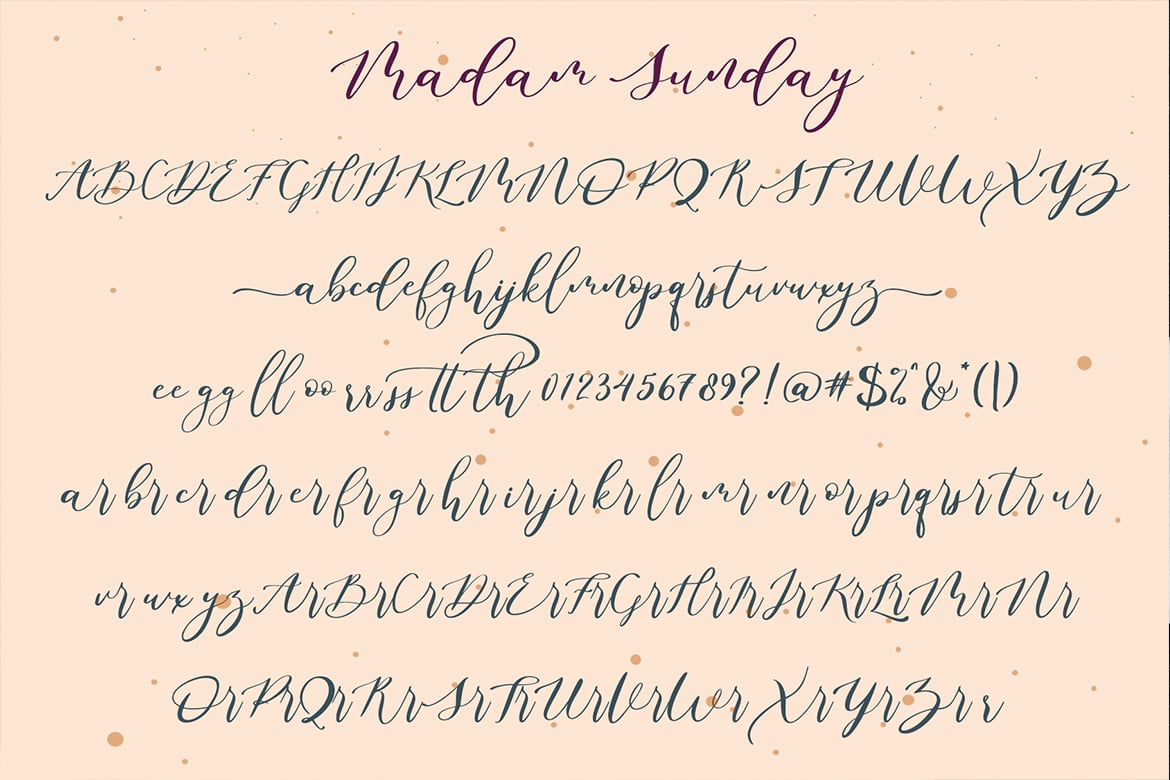 Madam Sunday
ABCDEFGHIJKLMNOPQRSTUVWXYZ
abcdefghijklmnopqrstuvwxyz
ee gg ll oo rr ss tt th 0123456789?!@#$%^&*(|)
ar br cr dr er fr gr hr ir jr kr lr mr nr or pr qr sr tr ur
vr wx yz Ar Br Cr Dr Er Fr Gr Hr Ir Jr Kr Lr Mr Nr
Or Pr Qr Rr Sr Tr Ur Vr Wr Xr Yr Zr r